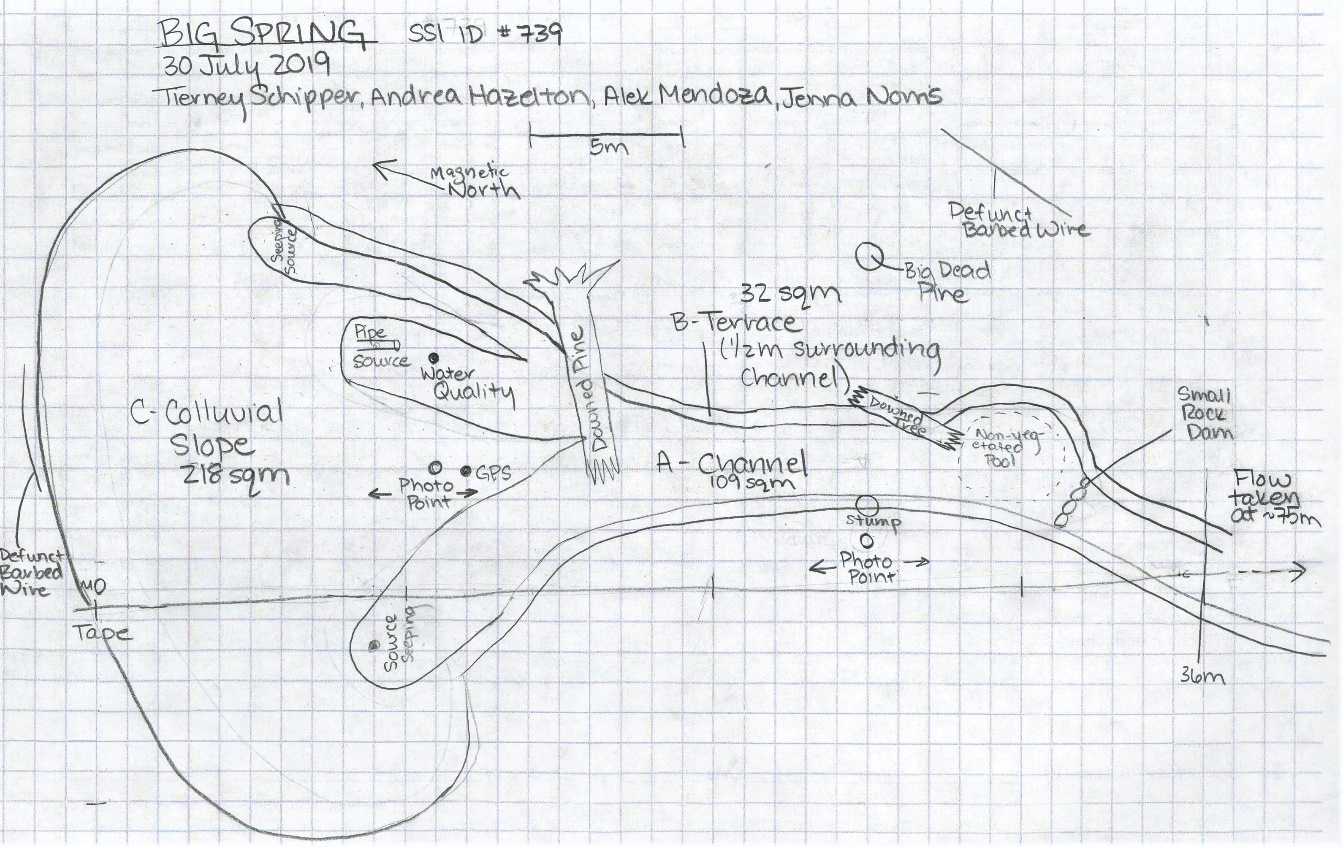 BIG SPRING SSI ID #739
30 July 2019
Tierney Schipper, Andrea Hazelton, Alek Mendoza, Jenna Norris
5m
Magnetic
North
Defunct
Barbed Wire
Big Dead
Pine
Seeping
Source
32 sqm
B-Terrace
(1/2m surrounding
Channel)
Pipe
Source
Water
Quality
Downed Pine
Downed
Tree
Non-veg-
etated
Pool
Small
Rock
Dam
C-Colluvial
Slope
218 sqm
A - Channel
109 sqm
GPS
Photo
Point
Flow
taken
at ~75m
Stump
Photo
Point
Defunct
Barbed
Wire
0
Tape
Source
Seeping
36m